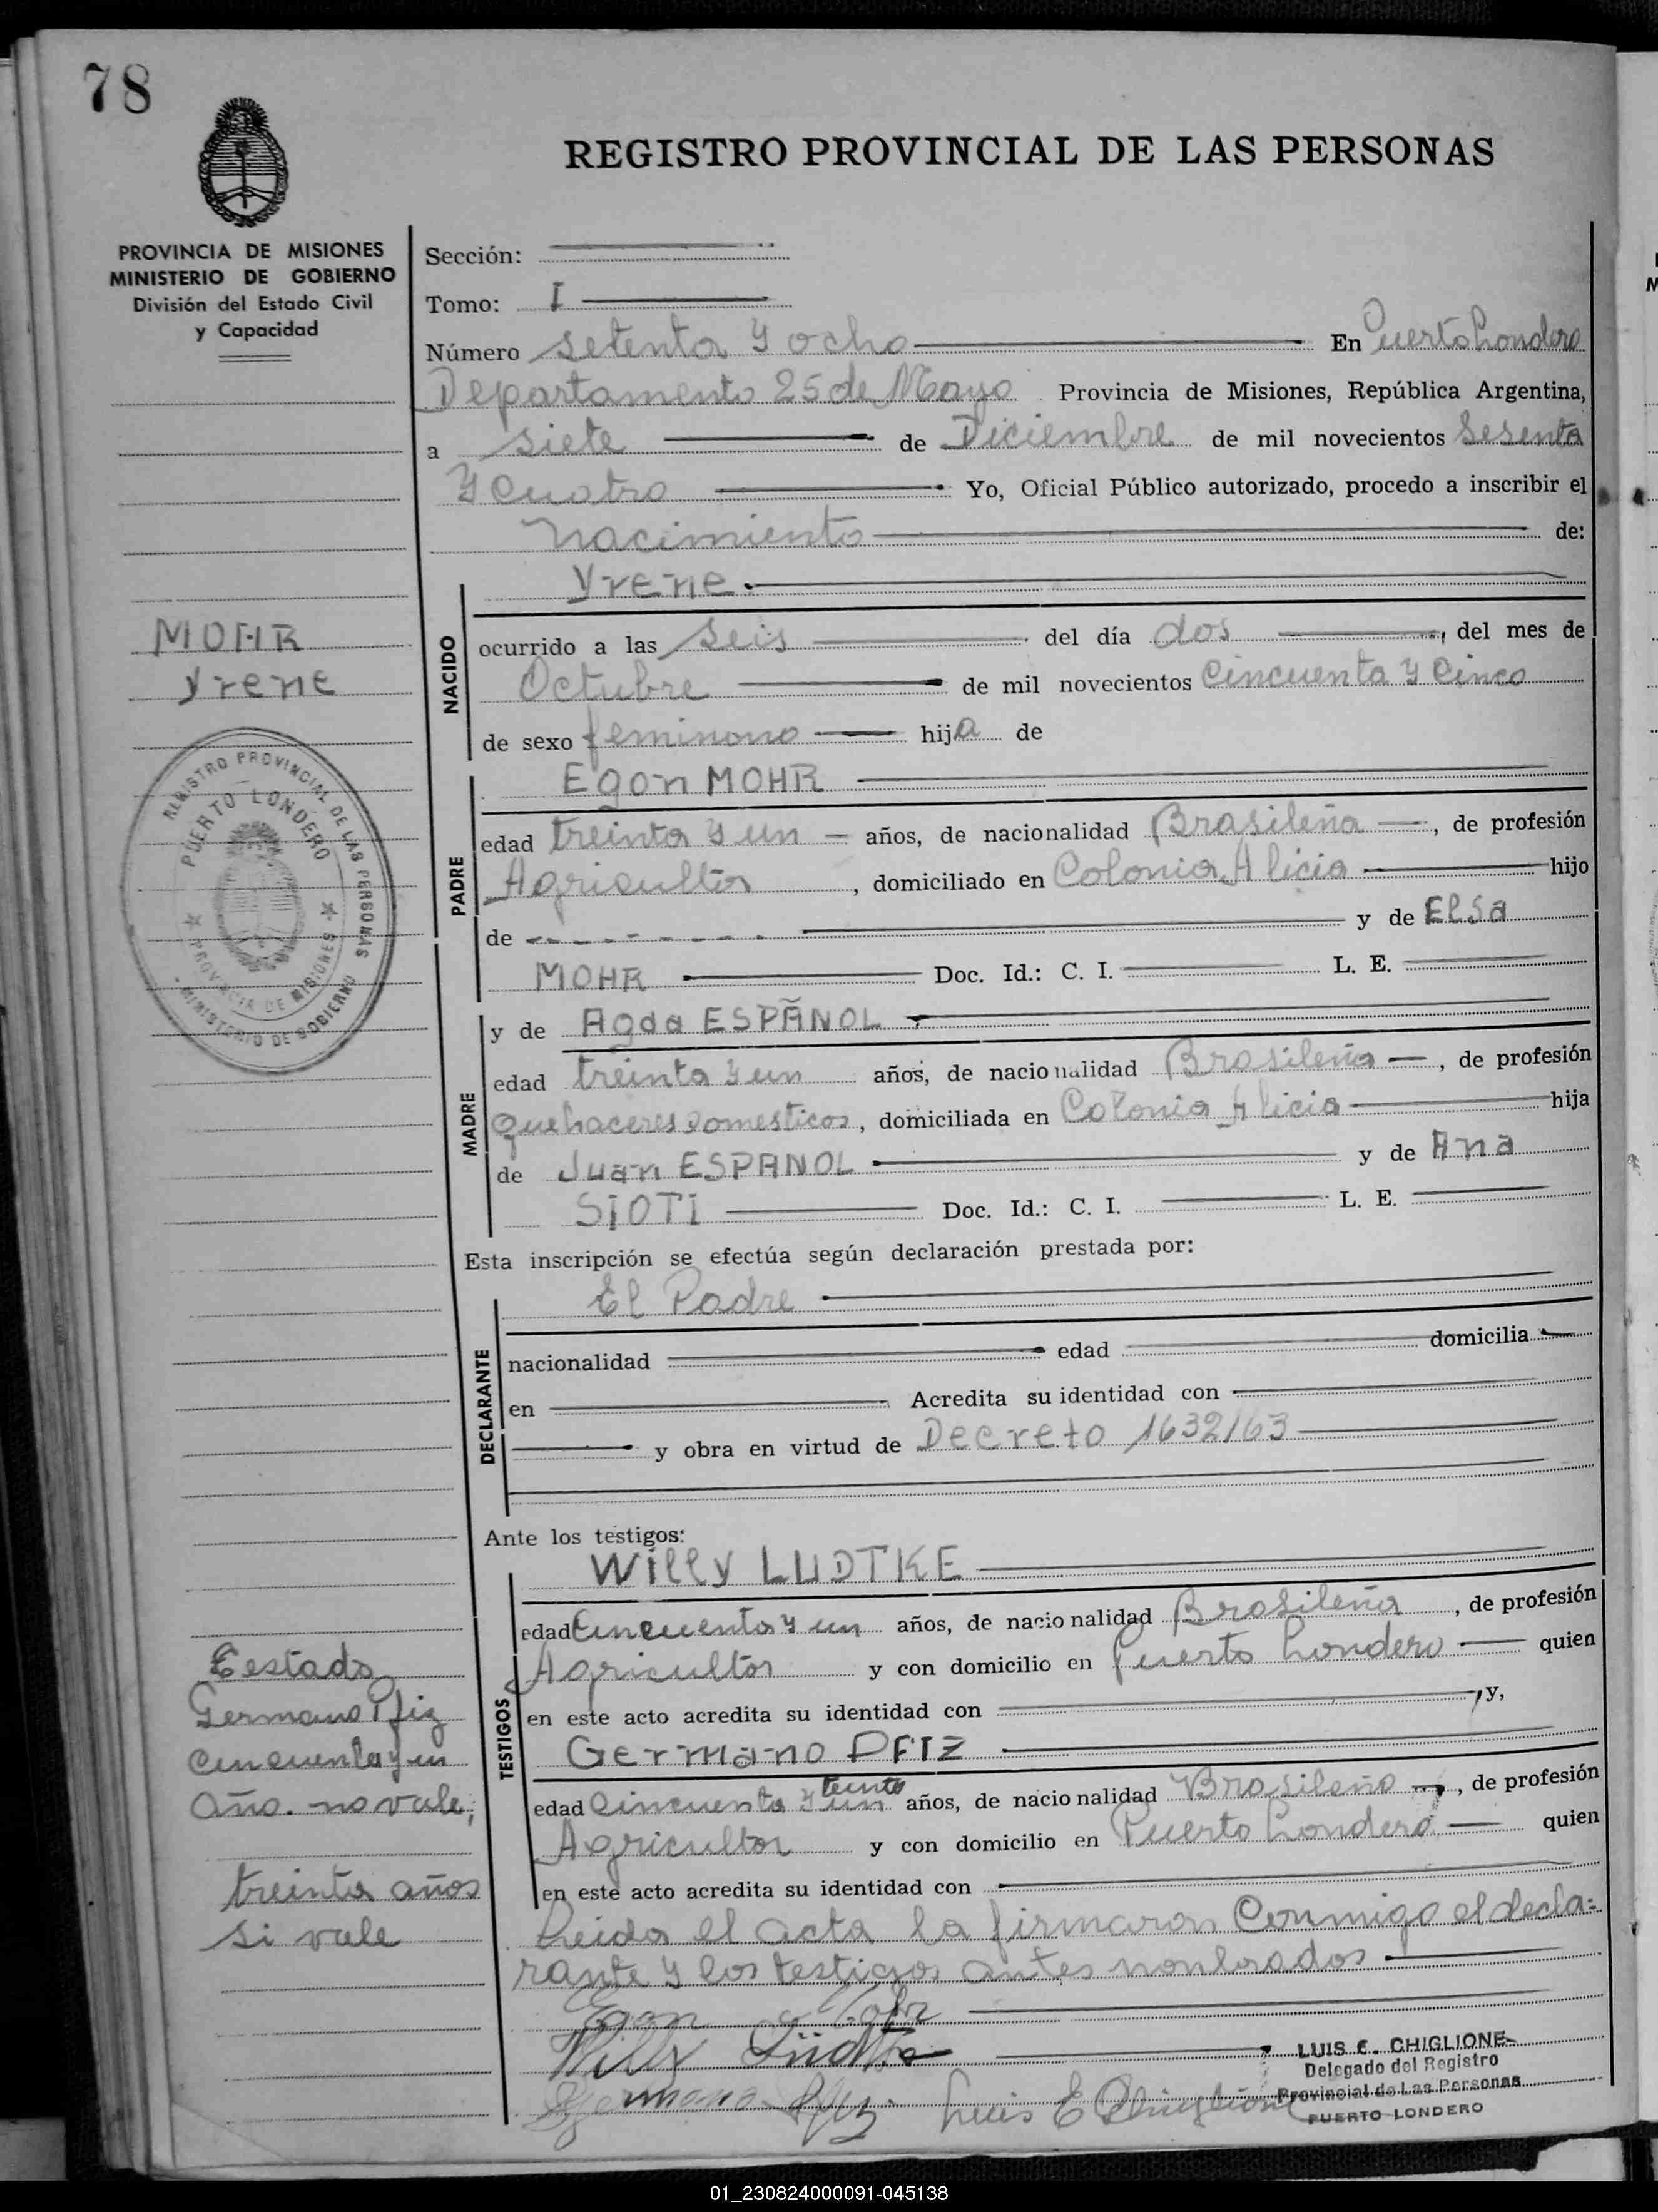 78
REGISTRO PROVINCIAL DE LAS PERSONAS
PROVINCIA DE MISIONES
MINISTERIO DE GOBIERNO
División del Estado Civil
y Capacidad
Sección:
Tomo: I
Número setenta y ocho En Puerto Londero
Departamento 25 de Mayo Provincia de Misiones, República Argentina,
a siete de Diciembre de mil novecientos Sesenta
y Cuatro Yo, Oficial Público autorizado, procedo a inscribir el
nacimiento de:
Yrene.
MOHR
Yrene
NACIDO
ocurrido a las seis del día dos, del mes de
Octubre de mil novecientos Cincuenta y Cinco
de sexo feminono hija de
REGISTRO PROVINCIAL DE LAS PERSONAS
PUERTO LONDERO
PROVINCIA DE MISIONES
MINISTERIO DE GOBIERNO
PADRE
Egon MOHR
edad treinta y un años, de nacionalidad Brasileña, de profesión
Agricultor, domiciliado en Colonia Alicia hijo
de - - - - - - - y de Elsa
MOHR Doc. Id.: C. I. L. E.
MADRE
y de Agda ESPAÑOL
edad treinta y un años, de nacionalidad Brasileña, de profesión
quehaceres domesticos, domiciliada en Colonia Alicia hija
de Juan ESPANOL y de Ana
SIOTI Doc. Id.: C. I. L. E.
Esta inscripción se efectúa según declaración prestada por:
DECLARANTE
El Padre
nacionalidad edad domicilia
en Acredita su identidad con
y obra en virtud de Decreto 1632/63
Ante los testigos:
TESTIGOS
Willy LUDTKE
edad Cincuenta y un años, de nacionalidad Brasileña, de profesión
Agricultor y con domicilio en Puerto Londero quien
en este acto acredita su identidad con y,
Germano PFIZ
edad Cincuenta y un treinta años, de nacionalidad Brasileño, de profesión
Agricultor y con domicilio en Puerto Londero quien
en este acto acredita su identidad con
Leida el acta la firmaron Conmigo el decla=
rante y los testigos antes nonbrados
Germano Pfiz
cincuenta y un
año. no vale,
treinta años
si vale
Egon Mohr
Willy Lüdtke
Germano Pfiz Luis E Chiglione
LUIS E. CHIGLIONE
Delegado del Registro
Provincial de Las Personas
PUERTO LONDERO
01_230824000091-045138